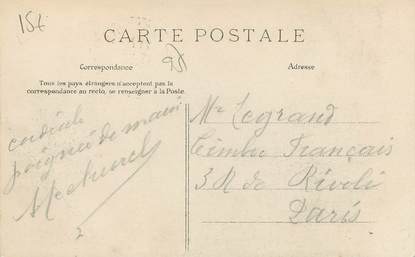 15t
CARTE POSTALE
Correspondance
Adresse
Tous les pays étrangers n'acceptent pas la
correspondance au recto, se renseigner à la Poste.
cordiale
poignée de main
Mr Legrand
Timbre Français
3 R de Rivoli
Paris